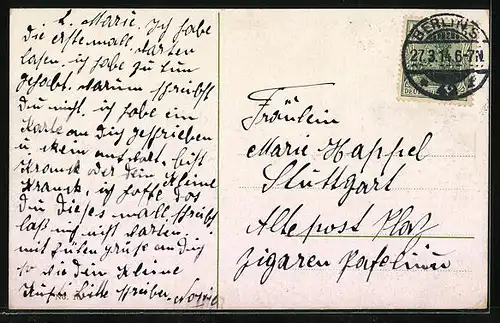 L. Marie, Ich habe
die erste mall warten
lasen. ich habe zu tun
gehabt. Warum schreibst
Du nicht, ich habe ein
Karte an Dich geschrieben
u. kein antwort. bist
Krank oder dein Kleine
Krank, ich hoffe das
du dieses mall schreibst
laß mich nicht warten.
mit guten gruße an dich
so wie dein Kleine
Bitte schreiben.
BERLIN S
27.3.14.6-7N.
Fräulein
Marie Happel
Stuttgart
Alte post Plaz
Zigaren